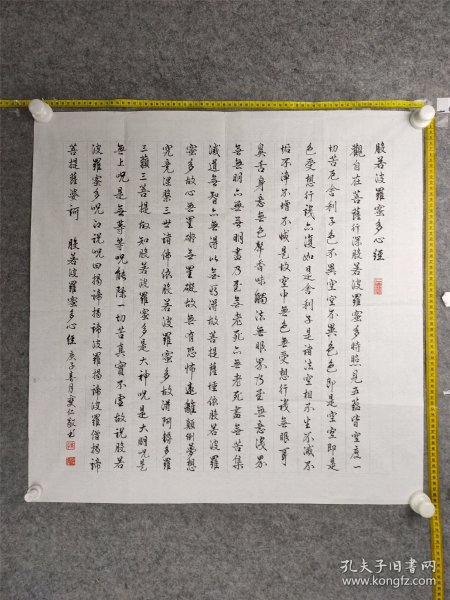 般若波羅蜜多心經
觀自在菩薩行深般若波羅蜜多時照見五蘊皆空度一
切苦厄舍利子色不異空空不異色色即是空空即是
色受想行識亦復如是舍利子是諸法空相不生不滅不
垢不淨不增不減是故空中無色無受想行識無眼耳
鼻舌身意無色聲香味觸法無眼界乃至無意識界
無無明亦無無明盡乃至無老死亦無老死盡無苦集
滅道無智亦無得以無所得故菩提薩埵依般若波羅
蜜多故心無罣礙無罣礙故無有恐怖遠離顛倒夢想
究竟涅槃三世諸佛依般若波羅蜜多故得阿耨多羅
三藐三菩提故知般若波羅蜜多是大神呪是大明呪是
無上呪是無等等呪能除一切苦真實不虛故說般若
波羅蜜多呪即說呪曰揭諦揭諦波羅揭諦波羅僧揭諦
菩提薩婆訶 般若波羅蜜多心經 庚子春月仁敬书
孔夫子旧书网
www.kongfz.com